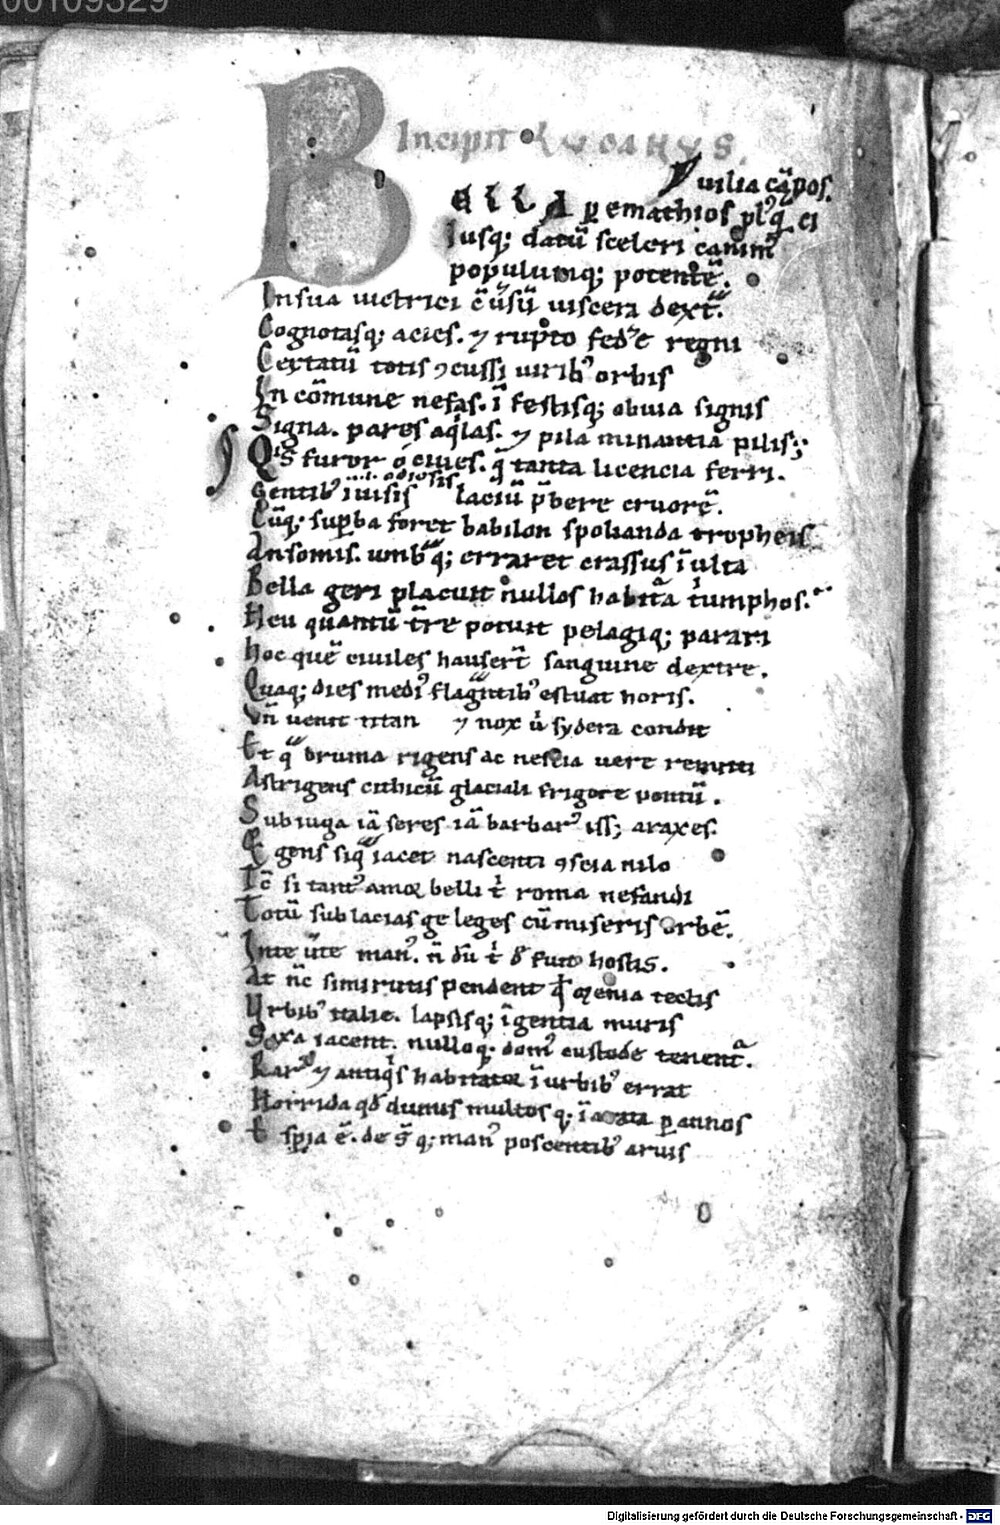 00109329
Incipit LUCANUS
B
uilia cāpos.
ELLA ꝑ emathios pl'q̄ ci
Iusq; datū sceleri canim'
populumq; potentē.
In sua uictrici c̄uersū uiscera dext̄.
Cognotasq; acies. ⁊ rupto fed'e regni
Certatū totis ꝯcussi uirib' orbis
In cōmune nefas. ī festisq; obuia signis
Signa. pares aq'las. ⁊ pila minantia pilis;
Qis furor o ciues. q̄ tanta licencia ferri.
odiosis
Gentib' īuisis laciū p̄bere cruorē.
Cūq; supba foret babilon spolianda tropheis
Ansomis. umbᵃq; erraret crassus īulta
Bella geri placuit nullos habit̄a tiumphos.
Heu quantū t̄re potuit pelagiq; parari
hoc quē ciuiles hauser̄t sanguine dextre.
Quaq; dies medi' flagr̄ntib' estuat horis.
Vn̄ uenit titan ⁊ nox u' sydera condit
Et qᵃ bruma rigens ac nescia uere remitti
Astrigens cithicū glaciali frigore pontū.
Sub iuga iā seres iā barbar' iss; araxes.
Et gens siqᵃ iacet nascenti ꝯscia nilo
Tc̄ si tant' amoꝛ belli t' roma nefandi
Totū sub lacias ge leges cū miseris orbē.
In te ūte man'. n̄ dū t' d' fuit hostis.
At n̄c simirutis pendent qd menia tectis
Urbib' italie. lapsisq; īgentia muris
Saxa iacent. nulloq; dom' custode tenent̄.
Rar' ⁊ antiq's habitatoꝛ ī urbib' errat
Horrida qd dumis multosq; īarata ꝑ annos
E spia ē. de s̄ q; man' poscentib' aruis
Digitalisierung gefördert durch die Deutsche Forschungsgemeinschaft - DFG